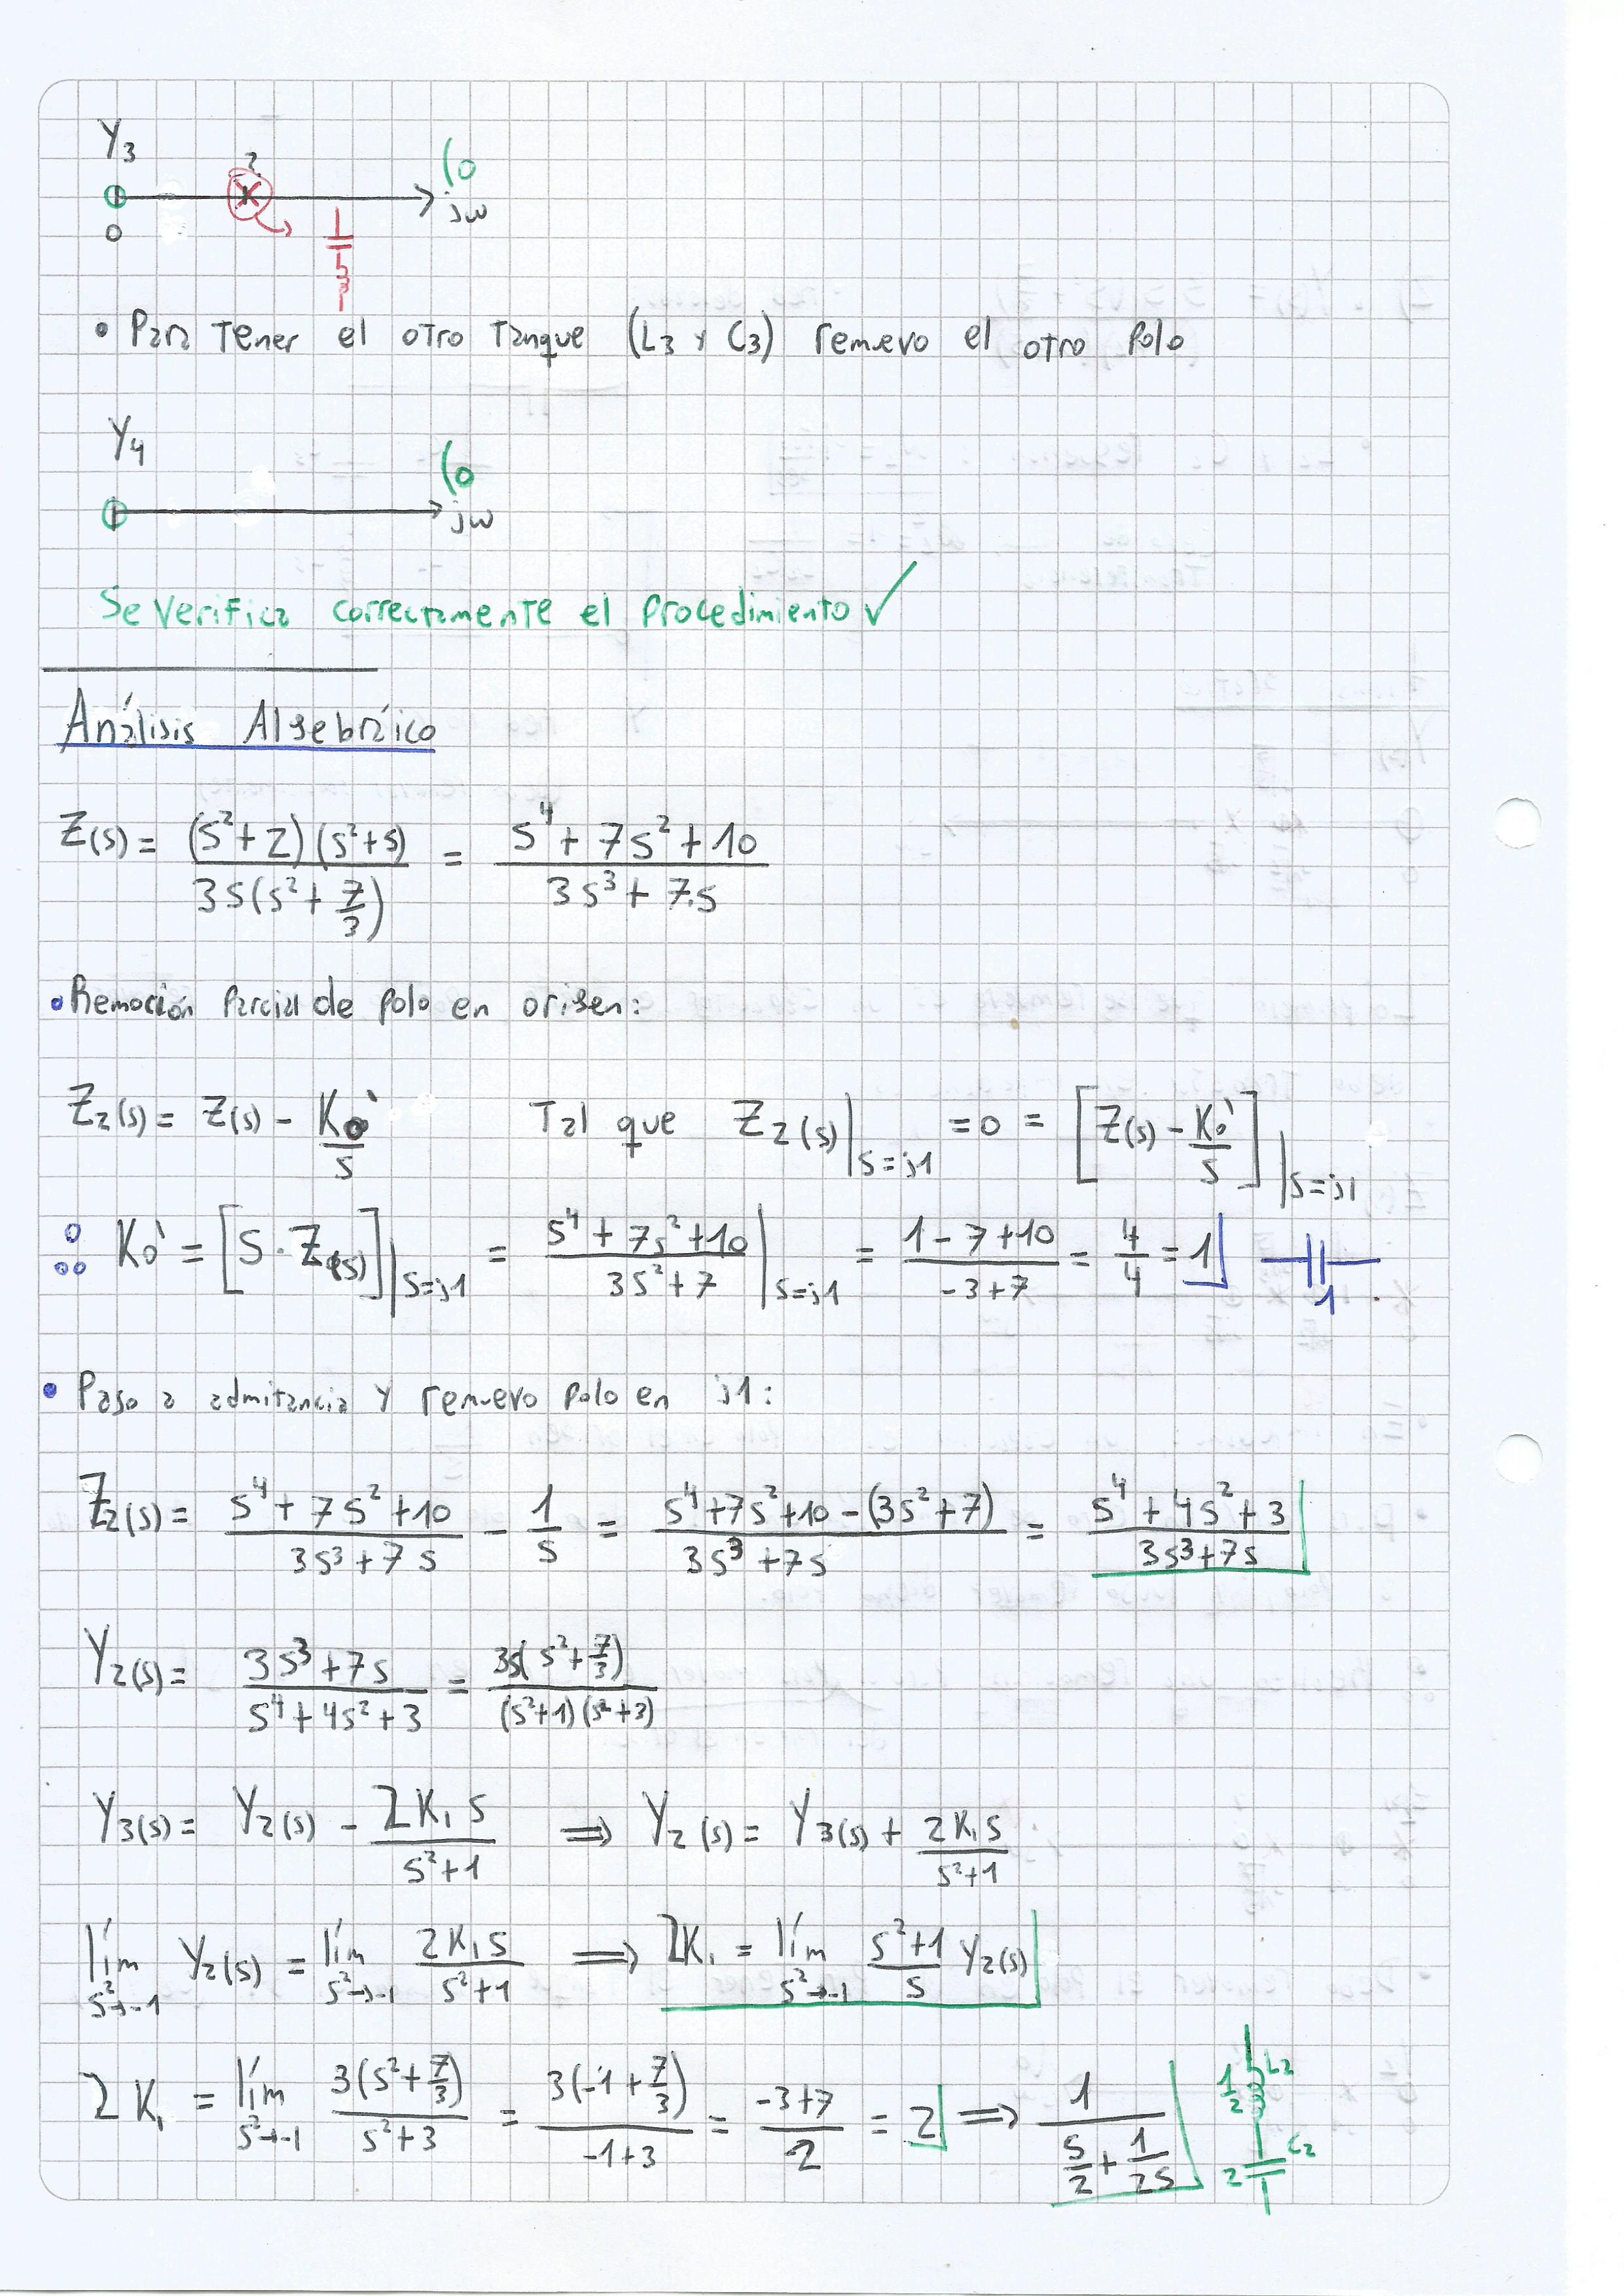 Y₃
?
(0
jω
0
• Para Tener el otro Tanque (L₃ y C₃) remuevo el otro Polo
Y₄
(0
jω
Se verifica correctamente el procedimiento ✓
Análisis Algebráico
Z(s) = (s²+2)(s²+5) / 3s(s²+7/3) = s⁴+7s²+10 / 3s³+7s
• Remoción Parcial de polo en origen:
Z₂(s) = Z(s) - K₀'/s Tal que Z₂(s)|s=j1 = 0 = [Z(s) - K₀'/s]|s=j1
∴ K₀' = [s·Z(s)]|s=j1 = s⁴+7s²+10 / 3s²+7 |s=j1 = 1-7+10 / -3+7 = 4/4 = 1 1
• Paso a admitancia y remuevo Polo en j1:
Z₂(s) = s⁴+7s²+10 / 3s³+7s - 1/s = s⁴+7s²+10-(3s²+7) / 3s³+7s = s⁴+4s²+3 / 3s³+7s
Y₂(s) = 3s³+7s / s⁴+4s²+3 = 3s(s²+7/3) / (s²+1)(s²+3)
Y₃(s) = Y₂(s) - 2K₁s / s²+1 ⟹ Y₂(s) = Y₃(s) + 2K₁s / s²+1
lím s²→-1 Y₂(s) = lím s²→-1 2K₁s / s²+1 ⟹ 2K₁ = lím s²→-1 s²+1 / s Y₂(s)
2K₁ = lím s²→-1 3(s²+7/3) / s²+3 = 3(-1+7/3) / -1+3 = -3+7 / 2 = 2 ⟹ 1 / s/2 + 1/2s 1/2 L₂ 2 C₂